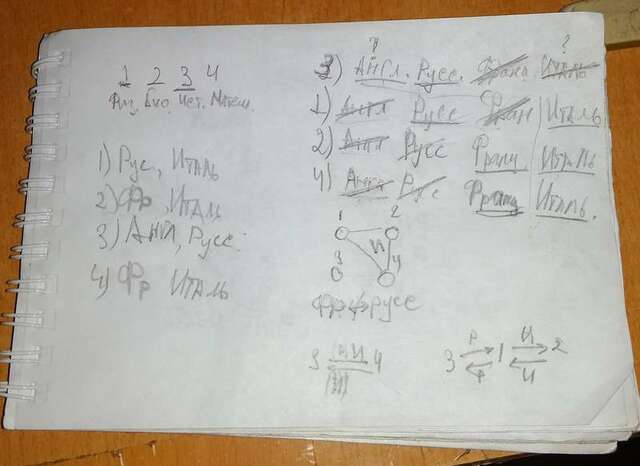 1 2 3 4
Физ. Био. Ист. Матем.
1) Рус, Италь
2) Фр, Италь
3) Англ, Русс
4) Фр Италь
? ?
3) Англ. Русс. Франц Италь
1) Англ Русс Фран Италь
2) Англ Русс Франц Италь
4) Англ Рус Франц Италь.
1 2
И
3 4
3 4
Р И
3 1 2
И